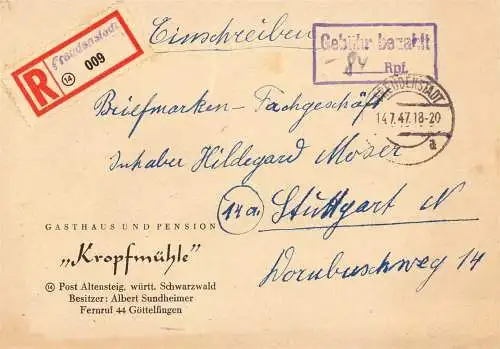 Freudenstadt
R
14
009
Einschreiben
Gebühr bezahlt
84 Rpf.
FREUDENSTADT
14.7.47.18-20
a
Briefmarken-Fachgeschäft
Inhaber Hildegard Moser
14a. Stuttgart N
Dornbuschweg 14
GASTHAUS UND PENSION
„Kropfmühle"
14 Post Altensteig, württ. Schwarzwald
Besitzer: Albert Sundheimer
Fernruf 44 Göttelfingen